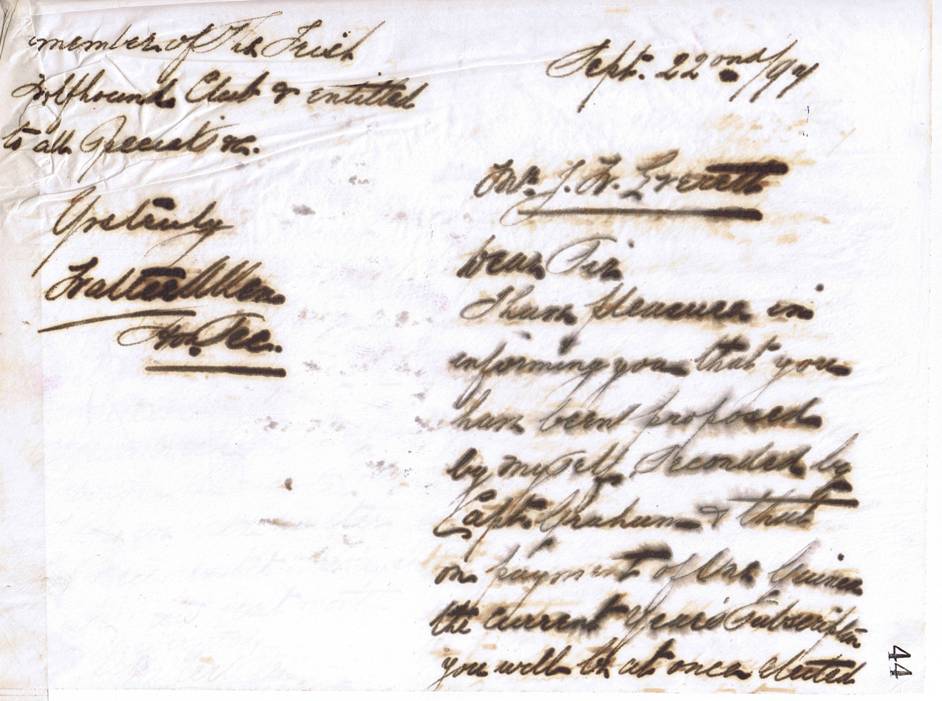 Sept. 22ond/94
Mr. J. W. Everett
Dear Sir
I have pleasure in
informing you that you
have been proposed
by myself, seconded by
Capt. Graham & that
on payment of One Guinea
the current years Subscription
you will be at once elected
member of The Irish
Wolfhound Club & entitled
to all Specials &c.
Yrs truly
Walter Allen
Hon. Sec.
44